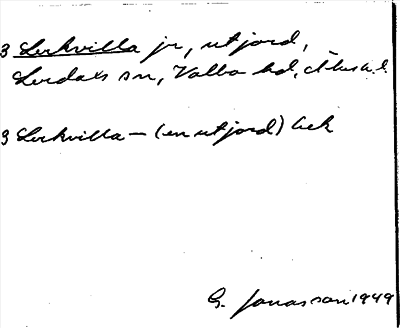 3 Lerkvilla jr, utjord,
Lerdals sn, Valbo hd, Älvsb. l.
3 Lerkvilla – (en utjord) Ack
G. Jonasson 1949